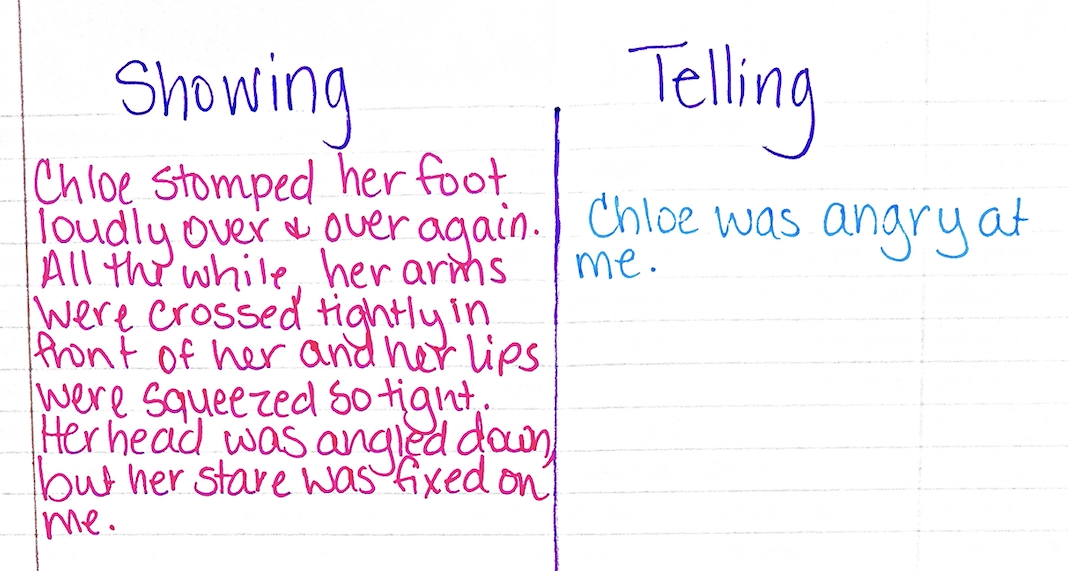 Showing
Telling
Chloe stomped her foot
loudly over & over again.
All the while, her arms
were crossed tightly in
front of her and her lips
were squeezed so tight.
Her head was angled down,
but her stare was fixed on
me.
Chloe was angry at
me.